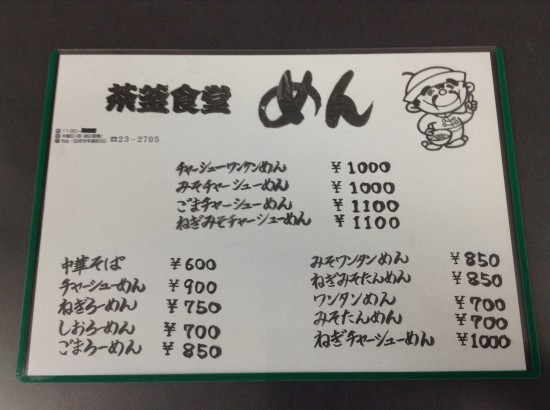 茶釜食堂 めん
☎23-2705
チャーシューワンタンめん ¥1000
みそチャーシューめん ¥1000
ごまチャーシューめん ¥1100
ねぎみそチャーシューめん ¥1100
中華そば ¥600
チャーシューめん ¥900
ねぎらーめん ¥750
しおらーめん ¥700
ごまらーめん ¥850
みそワンタンめん ¥850
ねぎみそたんめん ¥850
ワンタンめん ¥700
みそたんめん ¥700
ねぎチャーシューめん ¥1000